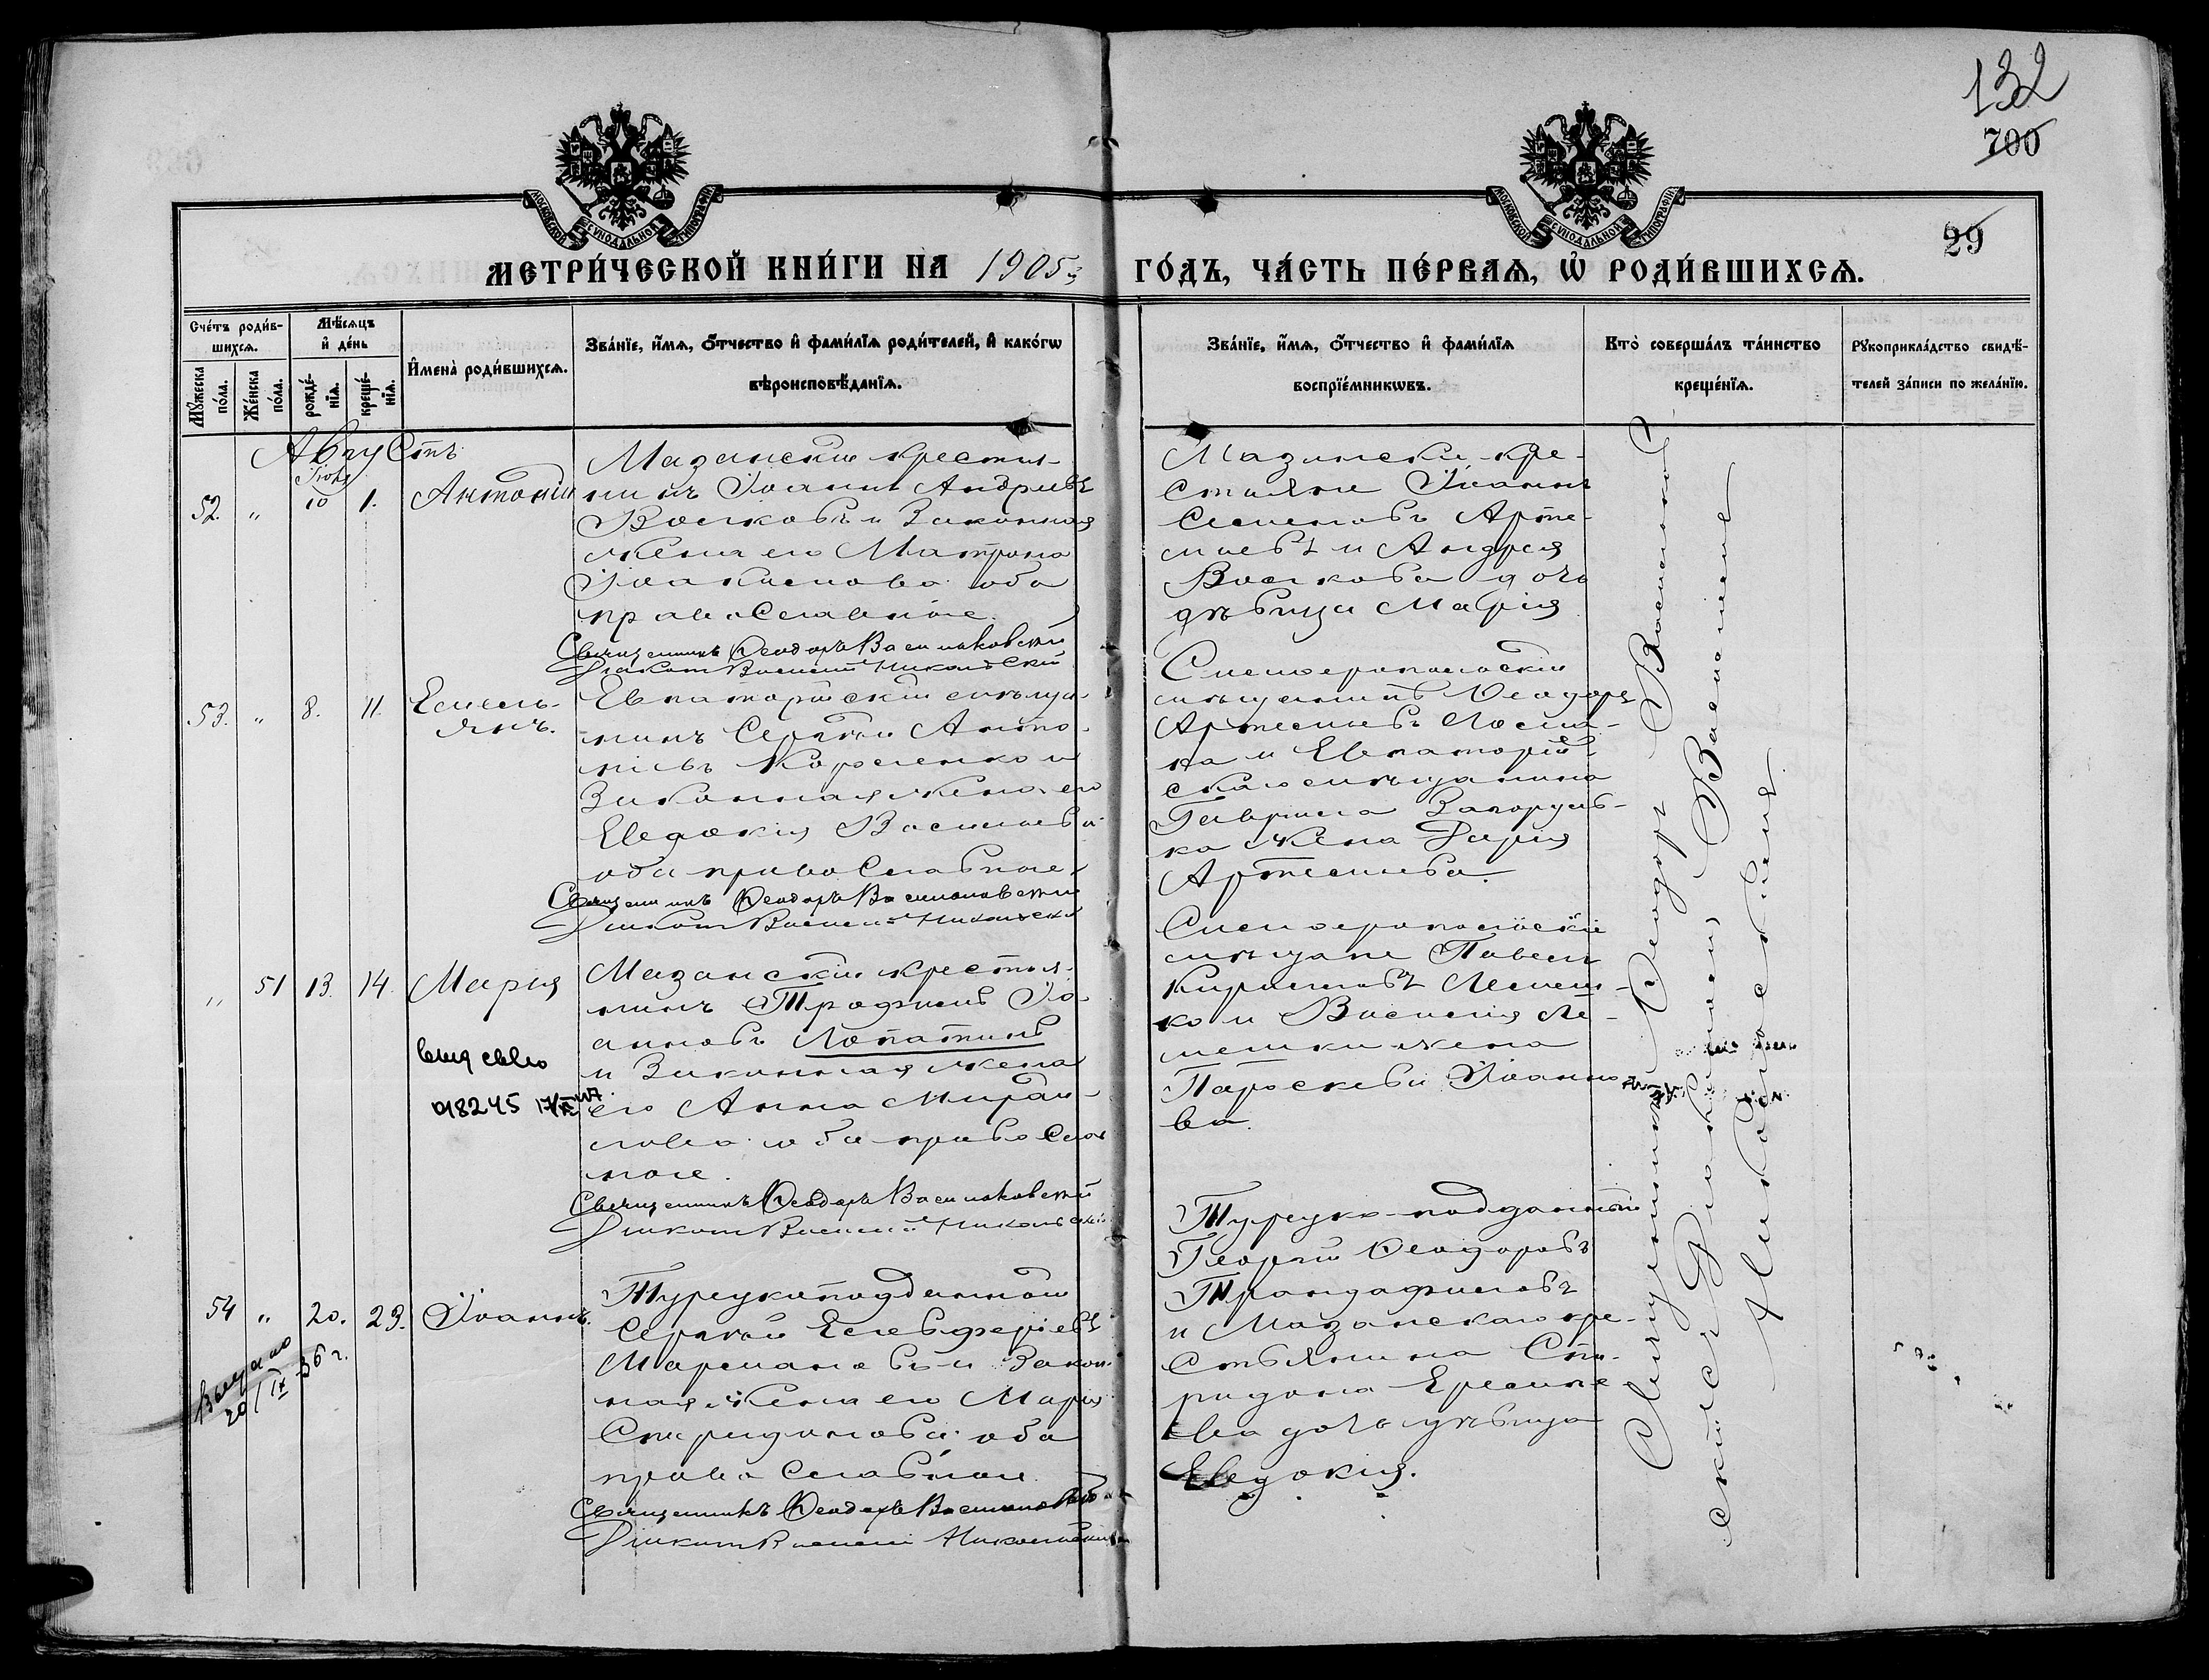 132
700
29
МОСКОВСКОЙ СѴНОДАЛЬНОЙ ТИПОГРАФІИ
МОСКОВСКОЙ СѴНОДАЛЬНОЙ ТИПОГРАФІИ
МЕТРИ́ЧЕСКОЙ КНИ́ГИ НА 1905
ГО́ДЪ, ЧА́СТЬ ПЕ́РВАѦ, Ѡ҆ РОДИ́ВШИХСѦ.
Сче́тъ роди́в-
шихсѧ.
Мꙋ́жеска по́ла.
Же́нска по́ла.
Мѣ́сѧцъ
и҆ де́нь
рожде́-
нїѧ.
креще́-
нїѧ.
И҆мена̀ роди́вшихсѧ.
Зва́нїе, и҆́мѧ, ѻ҆́тчество и҆ фами́лїѧ роди́телей, и҆ како́гѡ
вѣроисповѣ́данїѧ.
Зва́нїе, и҆́мѧ, ѻ҆́тчество и҆ фами́лїѧ
воспрїе́мникѡвъ.
Кто̀ соверша́лъ та́инство
креще́нїѧ.
Рꙋкоприкла́дство свидѣ́-
телей за́писи по жела́нїю.
Августъ
52. " 10 1. Антоній
Мазанскій крестья-
нинъ Іоаннъ Андреевъ
Волковъ и законная
жена его Матрона
Іоакимова оба
православные.
Священникъ Ѳеодоръ Васильковскій
Діаконъ Василій Никольскій
Мазански кре-
стьяне Іоаннъ
Семеновъ Арте-
мьевъ и Андрея
Волкова дочь
дѣвица Марія
53. " 8. 11. Емель-
янъ.
Евпаторійскій мѣща-
нинъ Сергѣй Анто-
ніевъ Короленко и
законная жена его
Евдокія Васильева
оба православные.
Священникъ Ѳеодоръ Васильковскій
Діаконъ Василій Никольскій
Симферопольскій
мѣщанинъ Ѳеодоръ
Артемьевъ
и Евпаторій-
скаго мѣщанина
Гавріила
жена Дарія
Артемьева.
" 51 13. 14. Марія
98245 17/
Мазанскій крестья-
нинъ Трофимъ Іо-
анновъ Лопатинъ
и законная жена
его Анна
оба православ-
ные.
Священникъ Ѳеодоръ Васильковскій
Діаконъ Василій Никольскій
Симферопольскіе
мѣщане Павелъ
Кирилловъ Лемеш-
ко и Василія Ле-
мешки жена
Параскева Іоанно-
ва.
54 " 20. 23. Іоаннъ.
Выдано
20/IX 36 г.
Турецкоподданный
Сергѣй Елевферіевъ
и закон-
ная жена его Марія
Спиридонова оба
православные.
Священникъ Ѳеодоръ Васильковскій
Діаконъ Василій Никольскій
Турецко-подданный
Георгій Ѳеодоровъ
Трандафиловъ
и Мазанскаго кре-
стьянина Спи-
ридона
дочь дѣвица
Евдокія.
Священникъ Ѳеодоръ Васильков-
скій съ Діакономъ Василіемъ
Никольскимъ.